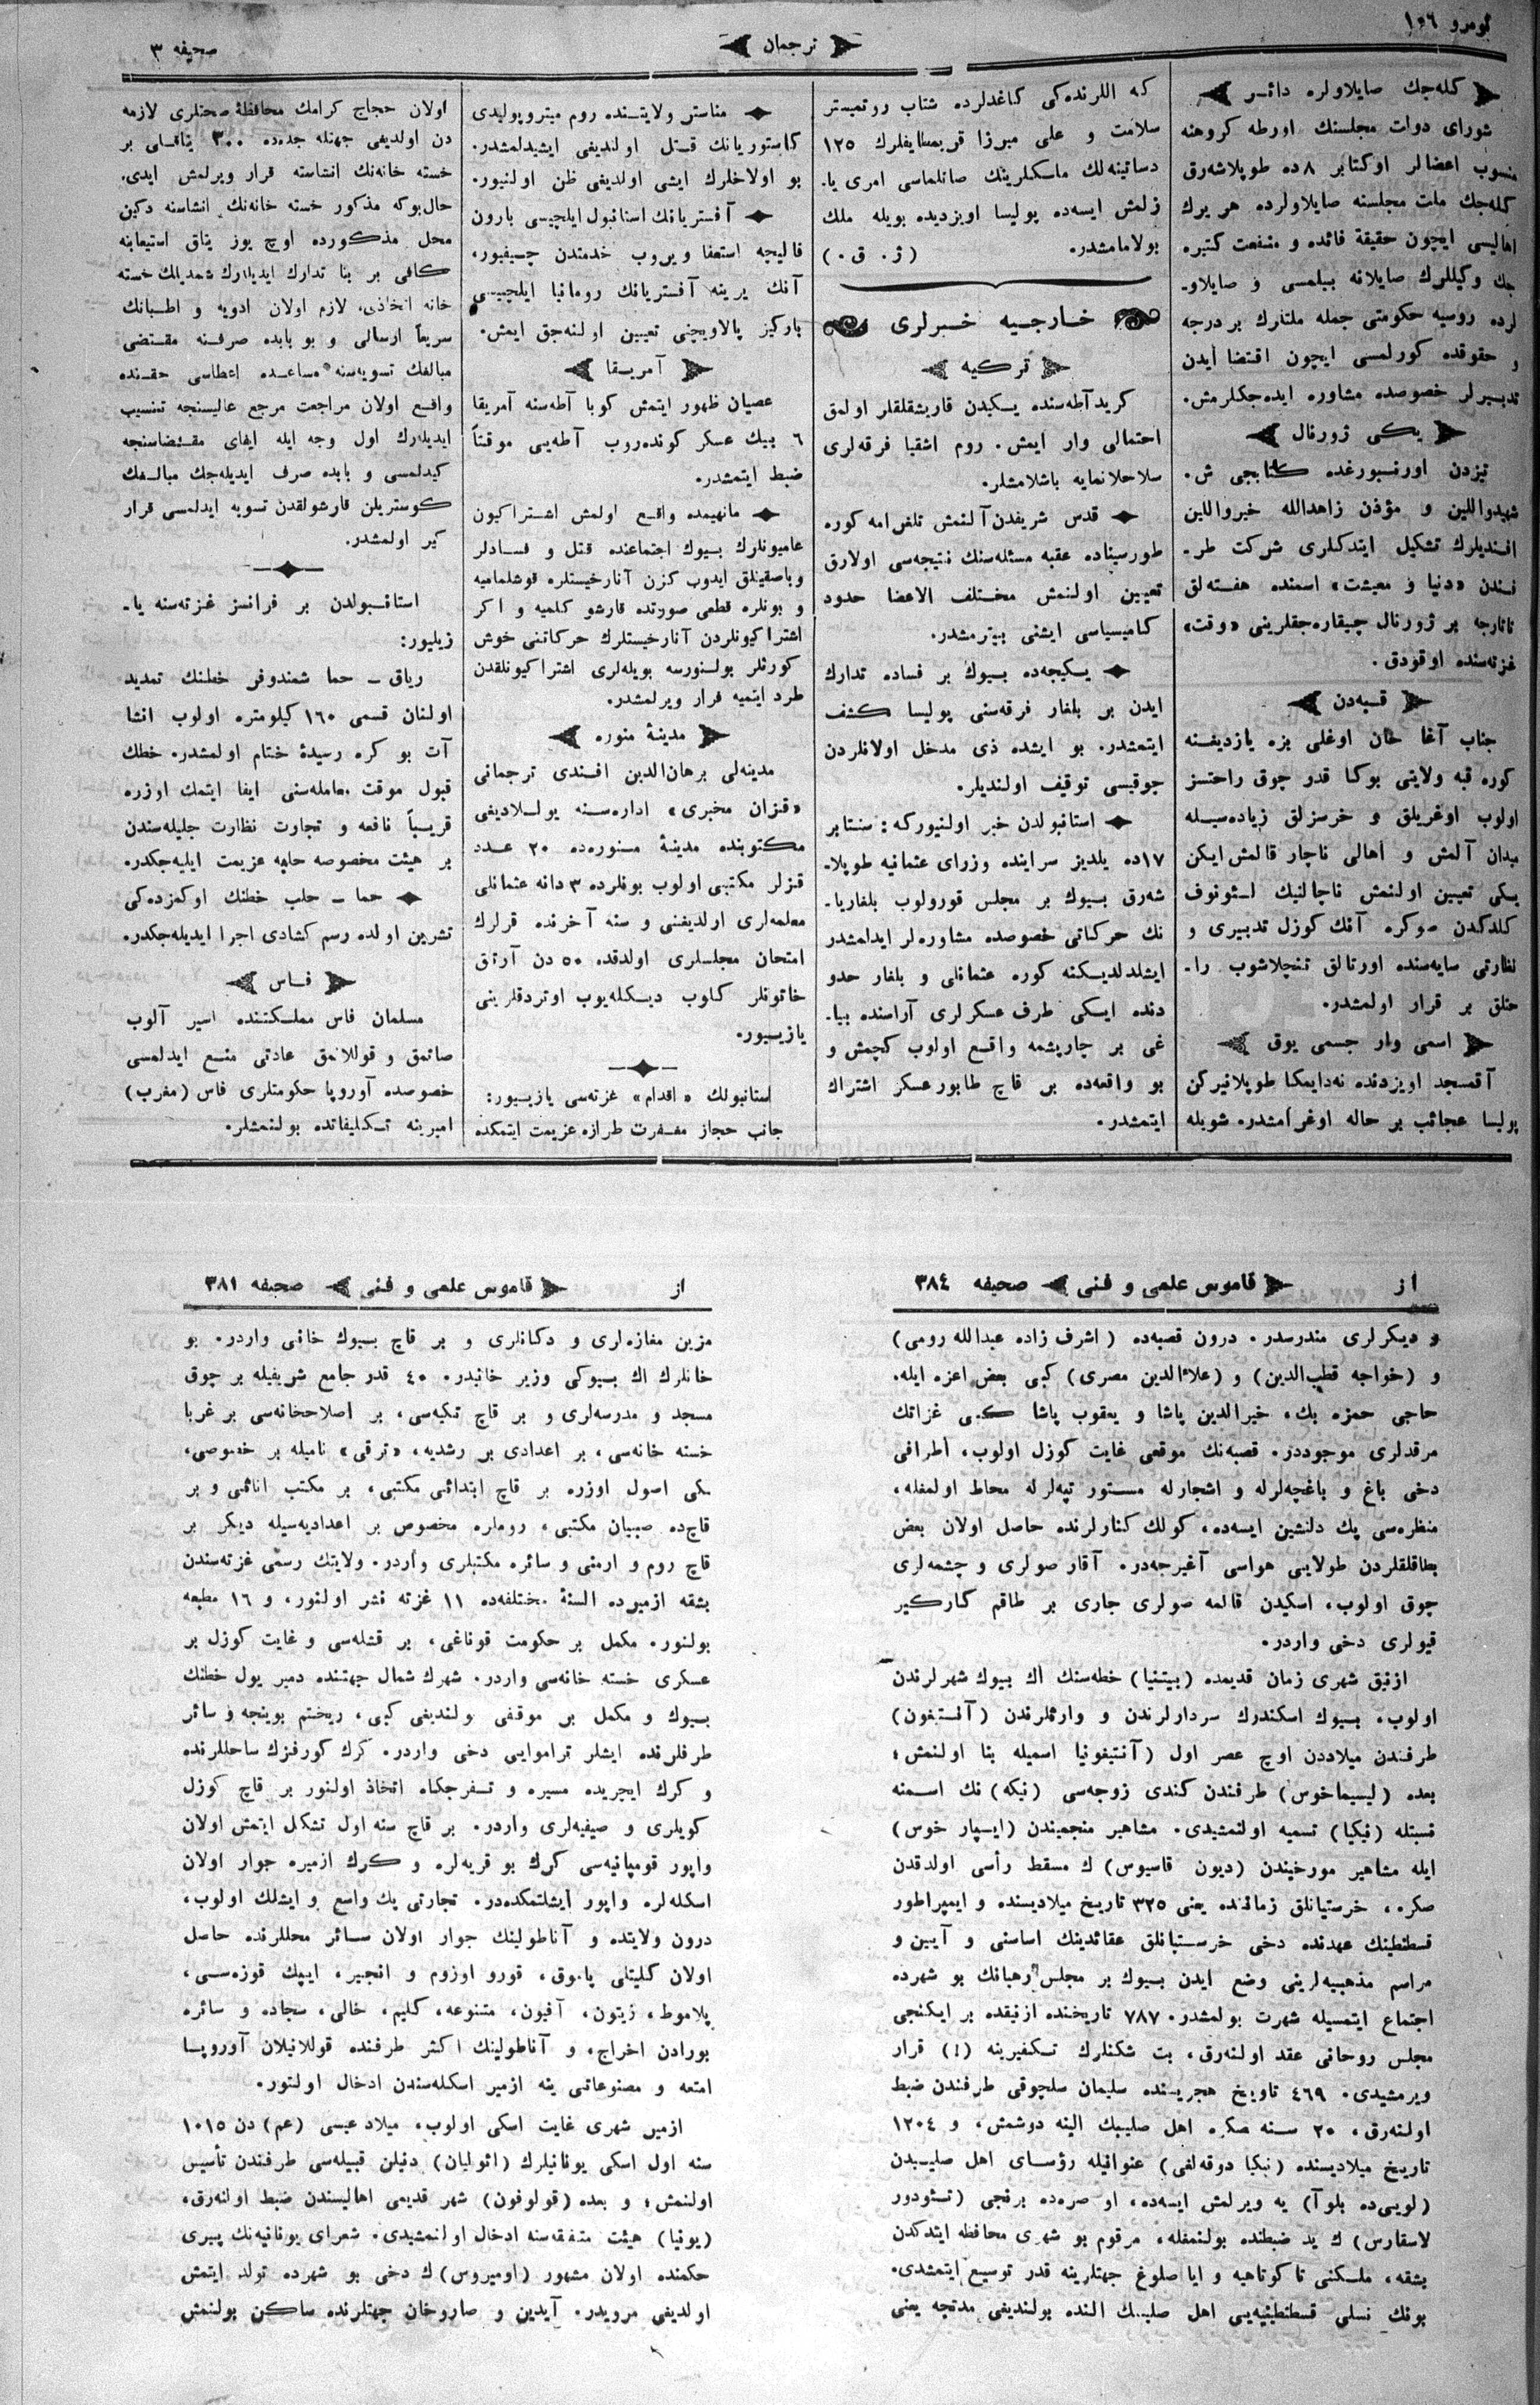 نومرو ١٠٦
ترجمان
صحیفه ٣
كله‌جك صایلاولره دائر
شورای دولت مجلسنك اورطه كروهنه
منسوب اعضالر اوكتابر ٨ ده طوپلاشه‌رق
كله‌جك ملت مجلسنه صایلاولرده هر یرك
اهالیسی ایچون حقیقة فائده و منفعت كتیره
جك وكیللرك صایلانه بیلمسی و صایلاو-
لرده روسیه حكومتی جمله ملتلرك بر درجه
و حقوقده كورلمسی ایچون اقتضا ایدن
تدبیرلر خصوصده مشاوره ایده‌جكلرمش.
یكی ژورنال
تیزدن اورنبورغده كتابجی ش.
شهیدواللین و مؤذن زاهدالله خیرواللین
افندیلرك تشكیل ایتدكلری شركت طر-
فندن «دنیا و معیشت» اسمنده هفته‌لق
تاتارجه بر ژورنال چیقاره‌جقلرینی «وقت»
غزته‌سنده اوقودق.
قبه‌دن
جناب آغا خان اوغلی بزه یازدیغنه
كوره قبه ولایتی بوكا قدر چوق راحتسز
اولوب اوغریلق و خرسزلق زیاده‌سیله
میدان آلمش و اهالی ناچار قالمش ایكن
یكی تعیین اولنمش ناچالنیك
كلدكدن صوكره آنك كوزل تدبیری و
نظارتی سایه‌سنده اورتالق تنچلاشوب را-
حتلق بر قرار اولمشدر.
اسمی وار جسمی یوق
آقمسجد اویزدنده نه‌دایمكا طوپلانیركن
پولیسا عجائب بر حاله اوغرامشدر. شویله
كه اللرنده‌كی كاغدلرده شتاب روتمیستر
سلامت و علی میرزا قریمتایفلرك ١٢٥
دساتینه‌لك ماسكلرینك صاتلماسی امری یا-
زلمش ایسه‌ده پولیسا اویزدیده بویله ملك
بولامامشدر. (ژ. ق.)
خارجیه خبرلری
تركیه
كرید آطه‌سنده یكیدن قاریشقلقلر اولمق
احتمالی وار ایمش. روم اشقیا فرقه‌لری
سلاحلانمایه باشلامشلر.
قدس شریفدن آلنمش تلغرامه كوره
طورسیناده عقبه مسئله‌سنك نتیجه‌سی اولارق
تعیین اولنمش مختلف الاعضا حدود
كامیسیاسی ایشنی بیترمشدر.
یكیجه‌ده بیوك بر فساده تدارك
ایدن بر بلغار فرقه‌سنی پولیسا كشف
ایتمشدر. بو ایشده ذی مدخل اولانلردن
چوقیسی توقیف اولندیلر.
استانبولدن خبر اولنیوركه: سنتابر
١٧ ده یلدیز سراینده وزرای عثمانیه طوپلا-
شه‌رق بیوك بر مجلس قورولوب بلغاریا-
نك حركاتی خصوصده مشاوره‌لر ایدلمشدر
ایشلدلدیكنه كوره عثمانلی و بلغار حدو
دنده ایكی طرف عسكرلری آراسنده بیا-
غی بر چاریشمه واقع اولوب كچمش و
بو واقعه‌ده بر قاچ طابور عسكر اشتراك
ایتمشدر.
مناستر ولایتنده روم میتروپولیدی
كاستوریانك قتل اولندیغی ایشیدلمشدر.
بو اولاخلرك ایشی اولدیغی ظن اولنیور.
آفستریانك استانبول ایلچیسی بارون
قالیچه استعفا ویروب خدمتدن چیقیور،
آنك یرینه آفستریانك رومانیا ایلچیسی
مارکیز پالاویچنی تعیین اولنه‌جق ایمش.
آمریقا
عصیان ظهور ایتمش كوبا آطه‌سنه آمریقا
٦ بیك عسكر كونده‌روب آطه‌یی موقتاً
ضبط ایتمشدر.
مانهیمده واقع اولمش اشتراكیون
عامیونلرك بیوك اجتماعنده قتل و فسادلر
و باصقینلق ایدوب كزن آنارخیستلره قوشلمامیه
و بونلره قطعی صورتده قارشو كلمیه و اكر
اشتراكیونلردن آنارخیستلرك حركاتنی خوش
كورنلر بولنورسه بویله‌لری اشتراكیونلقدن
طرد ایتمیه قرار ویرلمشدر.
مدینۀ منوره
مدینه‌لی برهان‌الدین افندی ترجمانی
«قزان مخبری» اداره‌سنه یوللادیغی
مكتوبنده مدینۀ منوره‌ده ٢٠ عدد
قزلر مكتبی اولوب بونلرده ٣ دانه عثمانلی
معلمه‌لری اولدیغنی و سنه آخرنده قزلرك
امتحان مجلسلری اولدقده ٥٠ دن آرتق
خاتونلر كلوب دیكله‌یوب اوتردقلرینی
یازیور.
استانبولك «اقدام» غزته‌سی یازیور:
جانب حجاز مغفرت طرازه عزیمت ایتمكده
اولان حجاج كرامك محافظۀ صحتلری لازمه
دن اولدیغی جهتله جده‌ده ٣٠٠ یتاقلی بر
خسته خانه‌نك انشاسنه قرار ویرلمش ایدی.
حال‌بوكه مذكور خسته خانه‌نك انشاسنه دكین
محل مذكورده اوچ یوز یتاق استیعابنه
كافی بر بنا تدارك ایدیلرك شمدیلك خسته
خانه اتخاذی، لازم اولان ادویه و اطبانك
سریعاً ارسالی و بو بابده صرفنه مقتضی
مبالغك تسویه‌سنه مساعده اعطاسی حقنده
واقع اولان مراجعت مرجع عالیسنجه تنسیب
ایدیله‌رك اول وجه ایله ایفای مقتضاسنجه
كیدلمسی و بابده صرف ایدیله‌جك مبالغك
كوستریلن قارشولقدن تسویه ایدلمسی قرار
كیر اولمشدر.
استانبولدن بر فرانسز غزته‌سنه یا-
زیلیور:
ریاق - حما شمندوفر خطنك تمدید
اولنان قسمی ١٦٠ كیلومتره اولوب انشا
آت بو كره رسیدۀ ختام اولمشدر. خطك
قبول موقت معامله‌سنی ایفا ایتمك اوزره
قریباً نافعه و تجارت نظارت جلیله‌سندن
بر هیئت مخصوصه حلبه عزیمت ایلیه‌جكدر.
حما - حلب خطنك اوكمزده‌كی
تشرین اولده رسم كشادی اجرا ایدیله‌جكدر.
فاس
مسلمان فاس مملكتنده اسیر آلوب
صاتمق و قوللانمق عادتی منع ایدلمسی
خصوصده آوروپا حكومتلری فاس (مغرب)
امیرینه تكلیفاتده بولنمشلر.
از
قاموس علمی و فنی
صحیفه ٣٨٤
و دیكرلری مندرسدر. درون قصبه‌ده (اشرف زاده عبدالله رومی)
و (خواجه قطب‌الدین) و (علاءالدین مصری) كبی بعض اعزه ایله،
حاجی حمزه بك، خیرالدین پاشا و یعقوب پاشا كبی غزاتك
مرقدلری موجوددر. قصبه‌نك موقعی غایت كوزل اولوب، اطرافی
دخی باغ و باغچه‌لرله و اشجارله مستور تپه‌لرله محاط اولمغله،
منظره‌سی پك دلنشین ایسه‌ده، كولك كنارلرنده حاصل اولان بعض
بطاقلقلردن طولایی هواسی آغیرجه‌در. آقار صولری و چشمه‌لری
چوق اولوب، اسكیدن قالمه صولری جاری بر طاقم كاركیر
قیولری دخی واردر.
ازنیق شهری زمان قدیمده (بیتنیا) خطه‌سنك اك بیوك شهرلرندن
اولوب، بیوك اسكندرك سردارلرندن و وارثلرندن (آنتیغون)
طرفندن میلاددن اوچ عصر اول (آنتیغونیا اسمیله بنا اولنمش؛
بعده (لیسیماخوس) طرفندن كندی زوجه‌سی (نیكه) نك اسمنه
نسبتله (نیكیا) تسمیه اولنمشیدی. مشاهیر منجمیندن (ایپار خوس)
ایله مشاهیر مورخیندن (دیون قاسیوس) ك مسقط رأسی اولدقدن
صكره، خرستیانلق زماننده یعنی ٣٢٥ تاریخ میلادیسنده و ایمپراطور
قسطنطینك عهدنده دخی خرستیانلق عقائدینك اساسنی و آیین و
مراسم مذهبیه‌لرینی وضع ایدن بیوك بر مجلس رهبانك بو شهرده
اجتماع ایتمسیله شهرت بولمشدر. ٧٨٧ تاریخنده ازنیقده بر ایكنجی
مجلس روحانی عقد اولنه‌رق، بت شكنلرك تكفیرینه (!) قرار
ویرمشیدی. ٤٦٩ تاریخ هجریسنده سلیمان سلجوقی طرفندن ضبط
اولنه‌رق، ٢٠ سنه صكره اهل صلیبك الینه دوشمش، و ١٢٠٤
تاریخ میلادیسنده (نیكیا دوقه‌لغی) عنوانیله رؤسای اهل صلیبدن
(لویی‌ده بلوآ) یه ویرلمش ایسه‌ده، او صره‌ده برنجی (تئودور
لاسقارس) ك ید ضبطنده بولنمغله، مرقوم بو شهری محافظه ایتدكدن
بشقه، ملكنی تا كوتاهیه و ایا صلوغ جهتلرینه قدر توسیع ایتمشدی.
بونك نسلی قسطنطینیه‌یی اهل صلیبك النده بولندیغی مدتجه یعنی
از
قاموس علمی و فنی
صحیفه ٣٨١
مزین مغازه‌لری و دكانلری و بر قاچ بیوك خانی واردر. بو
خانلرك اك بیوكی وزیر خانیدر. ٤٠ قدر جامع شریفیله بر چوق
مسجد و مدرسه‌لری و بر قاچ تكیه‌سی، بر اصلاحخانه‌سی بر غربا
خسته خانه‌سی، بر اعدادی بر رشدیه، «ترقی» نامیله بر خصوصی،
یكی اصول اوزره بر قاچ ابتدائی مكتبی، بر مكتب اناثی و بر
قاچ‌ده صبیان مكتبی، روملره مخصوص بر اعدادیه‌سیله دیكر بر
قاچ روم و ارمنی و سائره مكتبلری واردر. ولایتك رسمی غزته‌سندن
بشقه ازمیرده السنۀ مختلفه‌ده ١١ غزته نشر اولنور، و ١٦ مطبعه
بولنور. مكمل بر حكومت قوناغی، بر قشله‌سی و غایت كوزل بر
عسكری خسته خانه‌سی واردر. شهرك شمال جهتنده دمیر یول خطنك
بیوك و مكمل بر موقفی بولندیغی كبی، ریختم بوینجه و سائر
طرفلرنده ایشلر تراموایی دخی واردر. كرك كورفزك ساحللرنده
و كرك ایچریده مسیره و تفرجكاه اتخاذ اولنور بر قاچ كوزل
كویلری و صیفیه‌لری واردر. بر قاچ سنه اول تشكل ایتمش اولان
واپور قومپانیه‌سی كرك بو قریه‌لره و كرك ازمیره جوار اولان
اسكله‌لره واپور ایشلتمكده‌در. تجارتی پك واسع و ایشلك اولوب،
درون ولایتده و آناطولینك جوار اولان سائر محللرنده حاصل
اولان كلیتلی پاموق، قورو اوزوم و انجیر، ایپك قوزه‌سی،
پلاموط، زیتون، آفیون، متنوعه، كلیم، خالی، سجاده و سائره
بورادن اخراج، و آناطولینك اكثر طرفنده قوللانیلان آوروپا
امتعه و مصنوعاتی ینه ازمیر اسكله‌سندن ادخال اولنور.
ازمیر شهری غایت اسكی اولوب، میلاد عیسی (عم) دن ١٠١٥
سنه اول اسكی یونانیلرك (ائولیان) دنیلن قبیله‌سی طرفندن تأسیس
اولنمش؛ و بعده (قولوفون) شهر قدیمی اهالیسندن ضبط اولنه‌رق،
(یونیا) هیئت متفقه‌سنه ادخال اولنمشیدی. شعرای یونانیه‌نك پیری
حكمنده اولان مشهور (اومیروس) ك دخی بو شهرده تولد ایتمش
اولدیغی مرویدر. آیدین و صاروخان جهتلرنده ساكن بولنمش